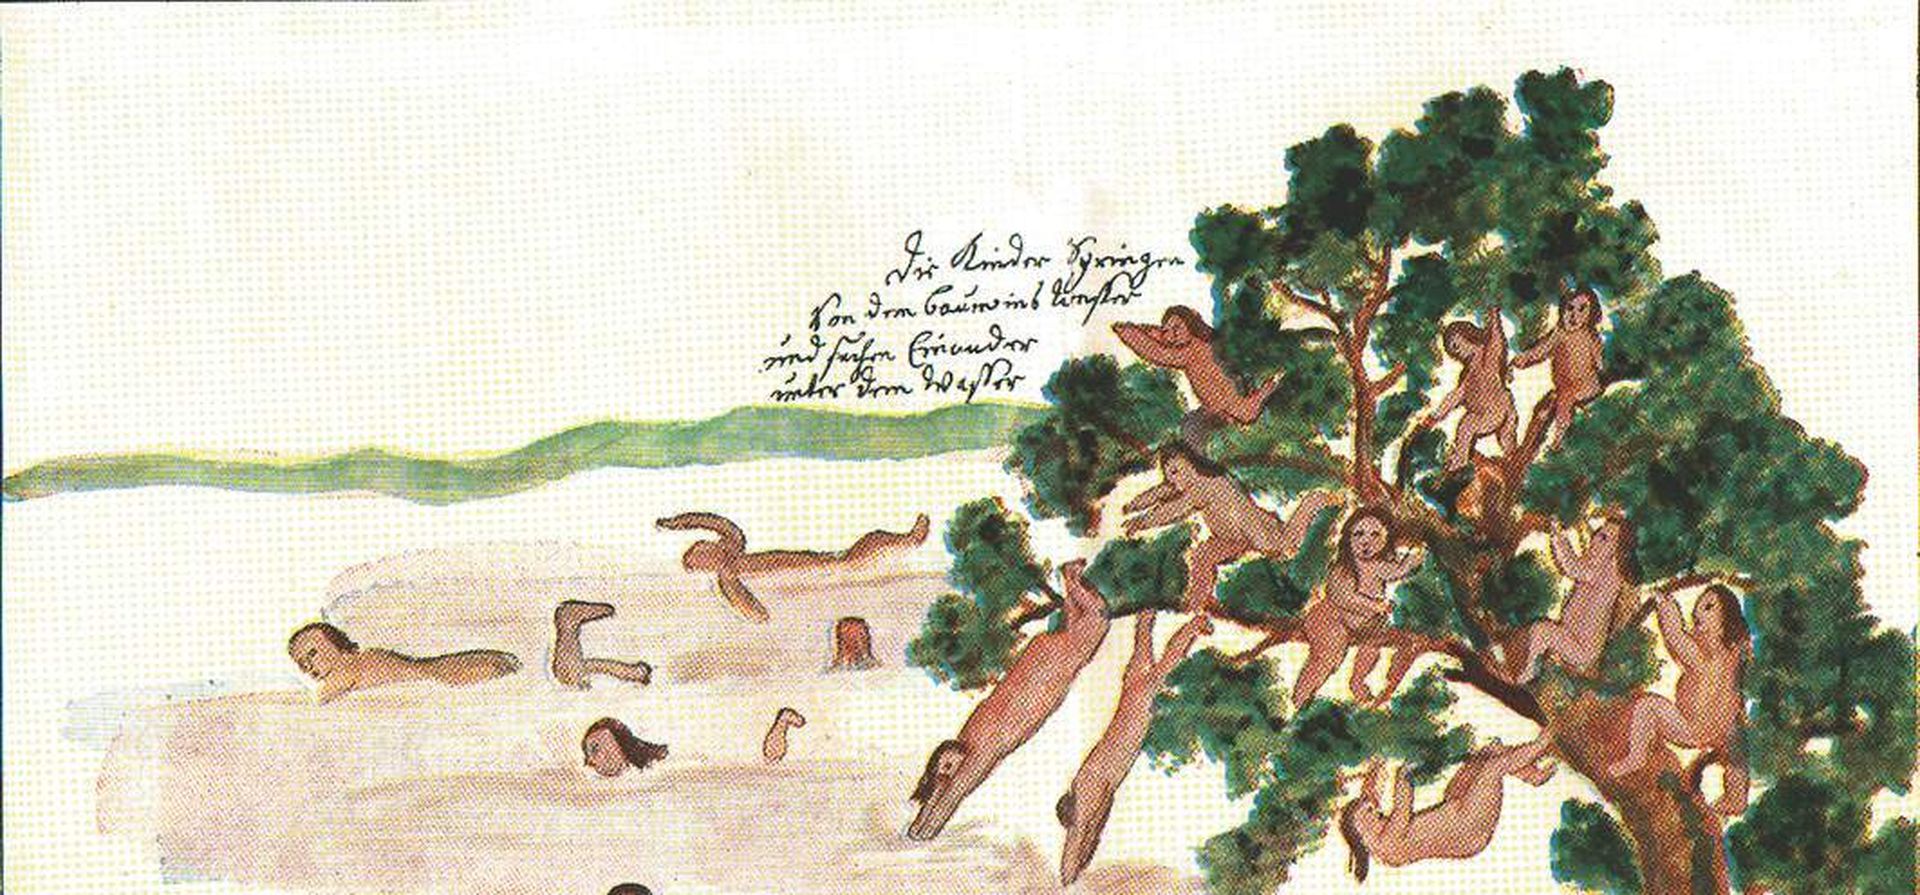 Die Kinder Springen
Von dem baum ins Wasser
und suchen Einander
unter dem Wasser